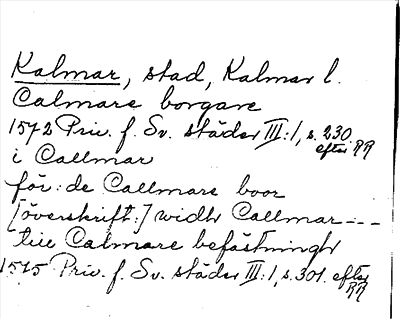 Kalmar, stad, Kalmar l.
Calmare borgare
1572 Priv. f. Sv. städer III:1, s. 230
efter RR
i Callmar
för: de Callmare boor
[överskrift:] widh Callmar ---
till Calmare befästningh
1575 Priv. f. Sv. städer III:1, s. 301. efter
RR